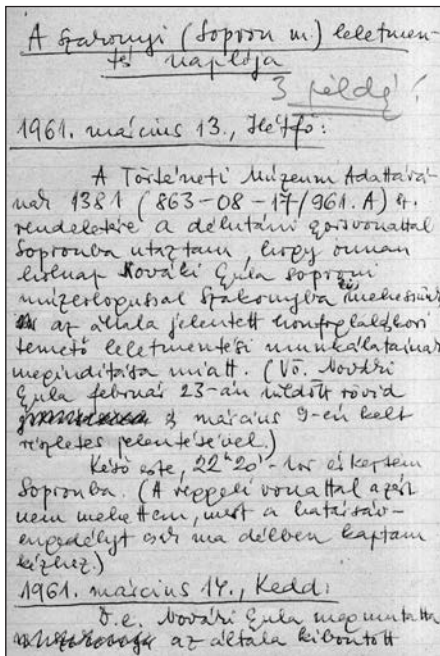 A Szakonyi (Sopron m.) leletmen-
tés naplója
3 példá!
1961. március 13., Hétfő:
A Történeti Múzeum Adattárá-
nak 1381 (863-08-17/961. A) sz.
rendeletére a délutáni gyorsvonattal
Sopronba utaztam, hogy onnan
holnap Nováki Gyula soproni
muzeologussal Szakonyba mehessünk
az általa jelentett honfoglaláskori
temető leletmentési munkálatainak
megindítása miatt. (Vö. Nováki
Gyula február 23-án küldött rövid
s március 9-én kelt
részletes jelentésével.)
Késő este, 22h20'-kor érkeztem
Sopronba. (A reggeli vonattal azért
nem mehettem, mert a határsáv-
engedélyt csak ma délben kaptam
kézhez.)
1961. március 14., Kedd:
D.e. Nováki Gyula megmutatta
az általa kibontott